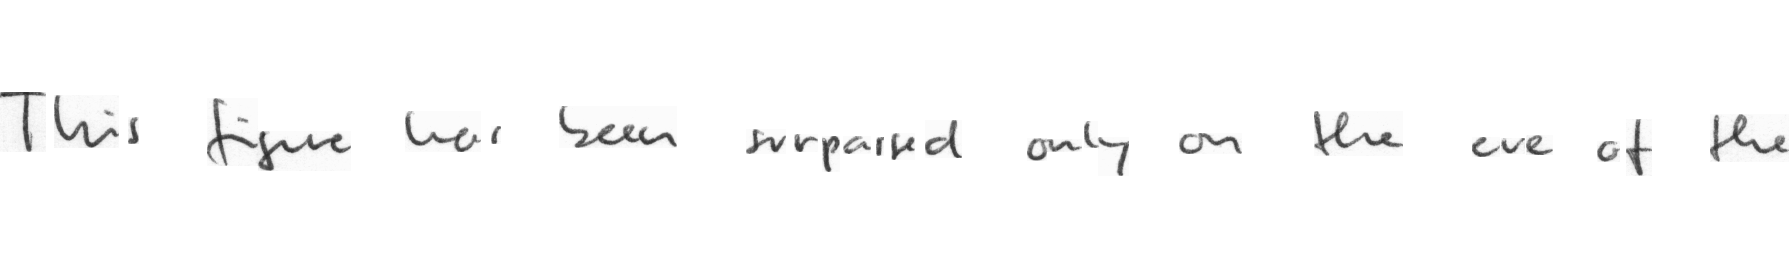 This figure has been surpassed only on the eve of the